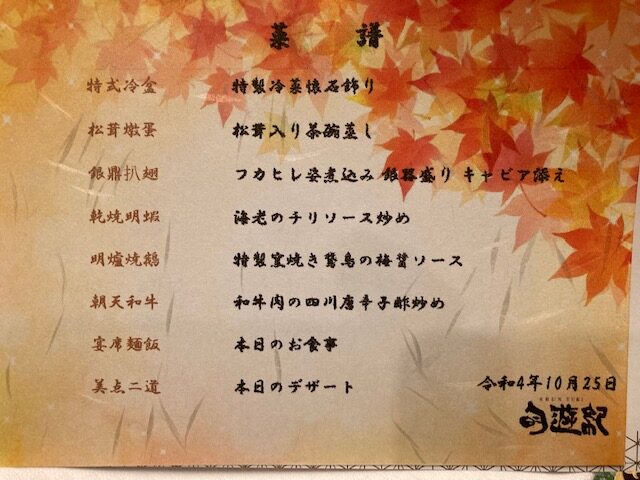 菜譜
特式冷盒 特製冷菜懐石飾り
松茸燉蛋 松茸入り茶碗蒸し
銀鼎扒翅 フカヒレ姿煮込み 銀器盛り キャビア添え
乾焼明蝦 海老のチリソース炒め
明爐焼鵝 特製窯焼き鵞鳥の梅醤ソース
朝天和牛 和牛肉の四川唐辛子酢炒め
宴席麺飯 本日のお食事
美点二道 本日のデザート
令和4年10月25日